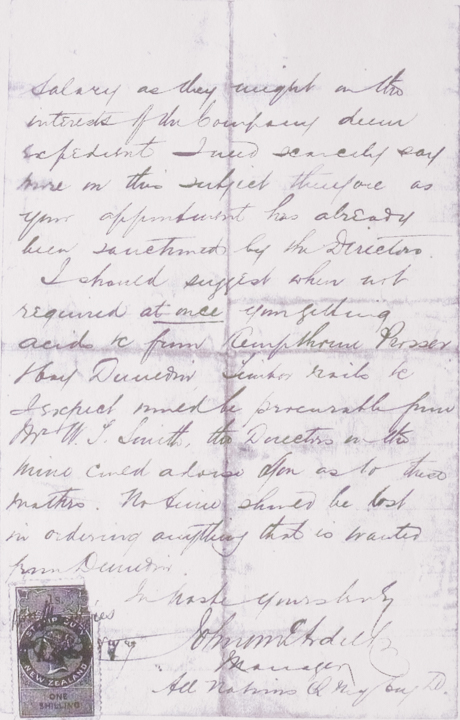 salary as they might in the
interests of the Company deem
expedient I need scarcely say
more on this subject therefore as
your appointment has already
been sanctioned by the Directors.
I should suggest when not
required at once your getting
acids &c from Kempthorne Prosser
Dunedin, Timber nails &c
I expect would be procurable from
Mr W. T. Smith, the Directors in the
mine could advise you as to these
matters. No time should be lost
in ordering anything that is wanted
from Dunedin
In haste yours truly
John McArdell
Manager
All Nations Q My Coy Ld.
STAMP DUTY
NEW ZEALAND
ONE
SHILLING